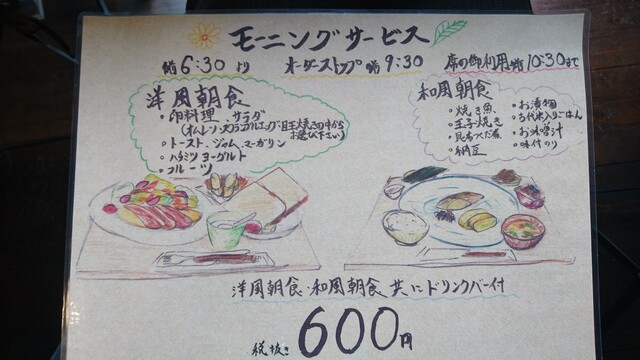 モーニングサービス
朝6:30より オーダーストップ朝9:30 席の御利用朝10:30まで
洋風朝食
・卵料理・サラダ
(オムレツ・スクランブルエッグ・目玉焼きの中から
お選び下さい)
・トースト、ジャム、マーガリン
・ハチミツヨーグルト
・フルーツ
和風朝食
・焼き魚
・玉子焼き
・昆布つくだ煮
・納豆
・お漬物
・古代米入りごはん
・お味噌汁
・味付のり
洋風朝食・和風朝食 共にドリンクバー付
税抜き 600円